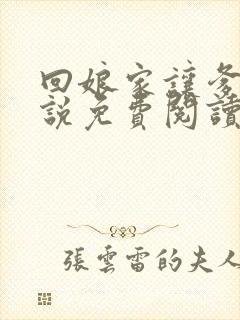 回娘家讓爹
說免費閱讀
張雲雷的夫人